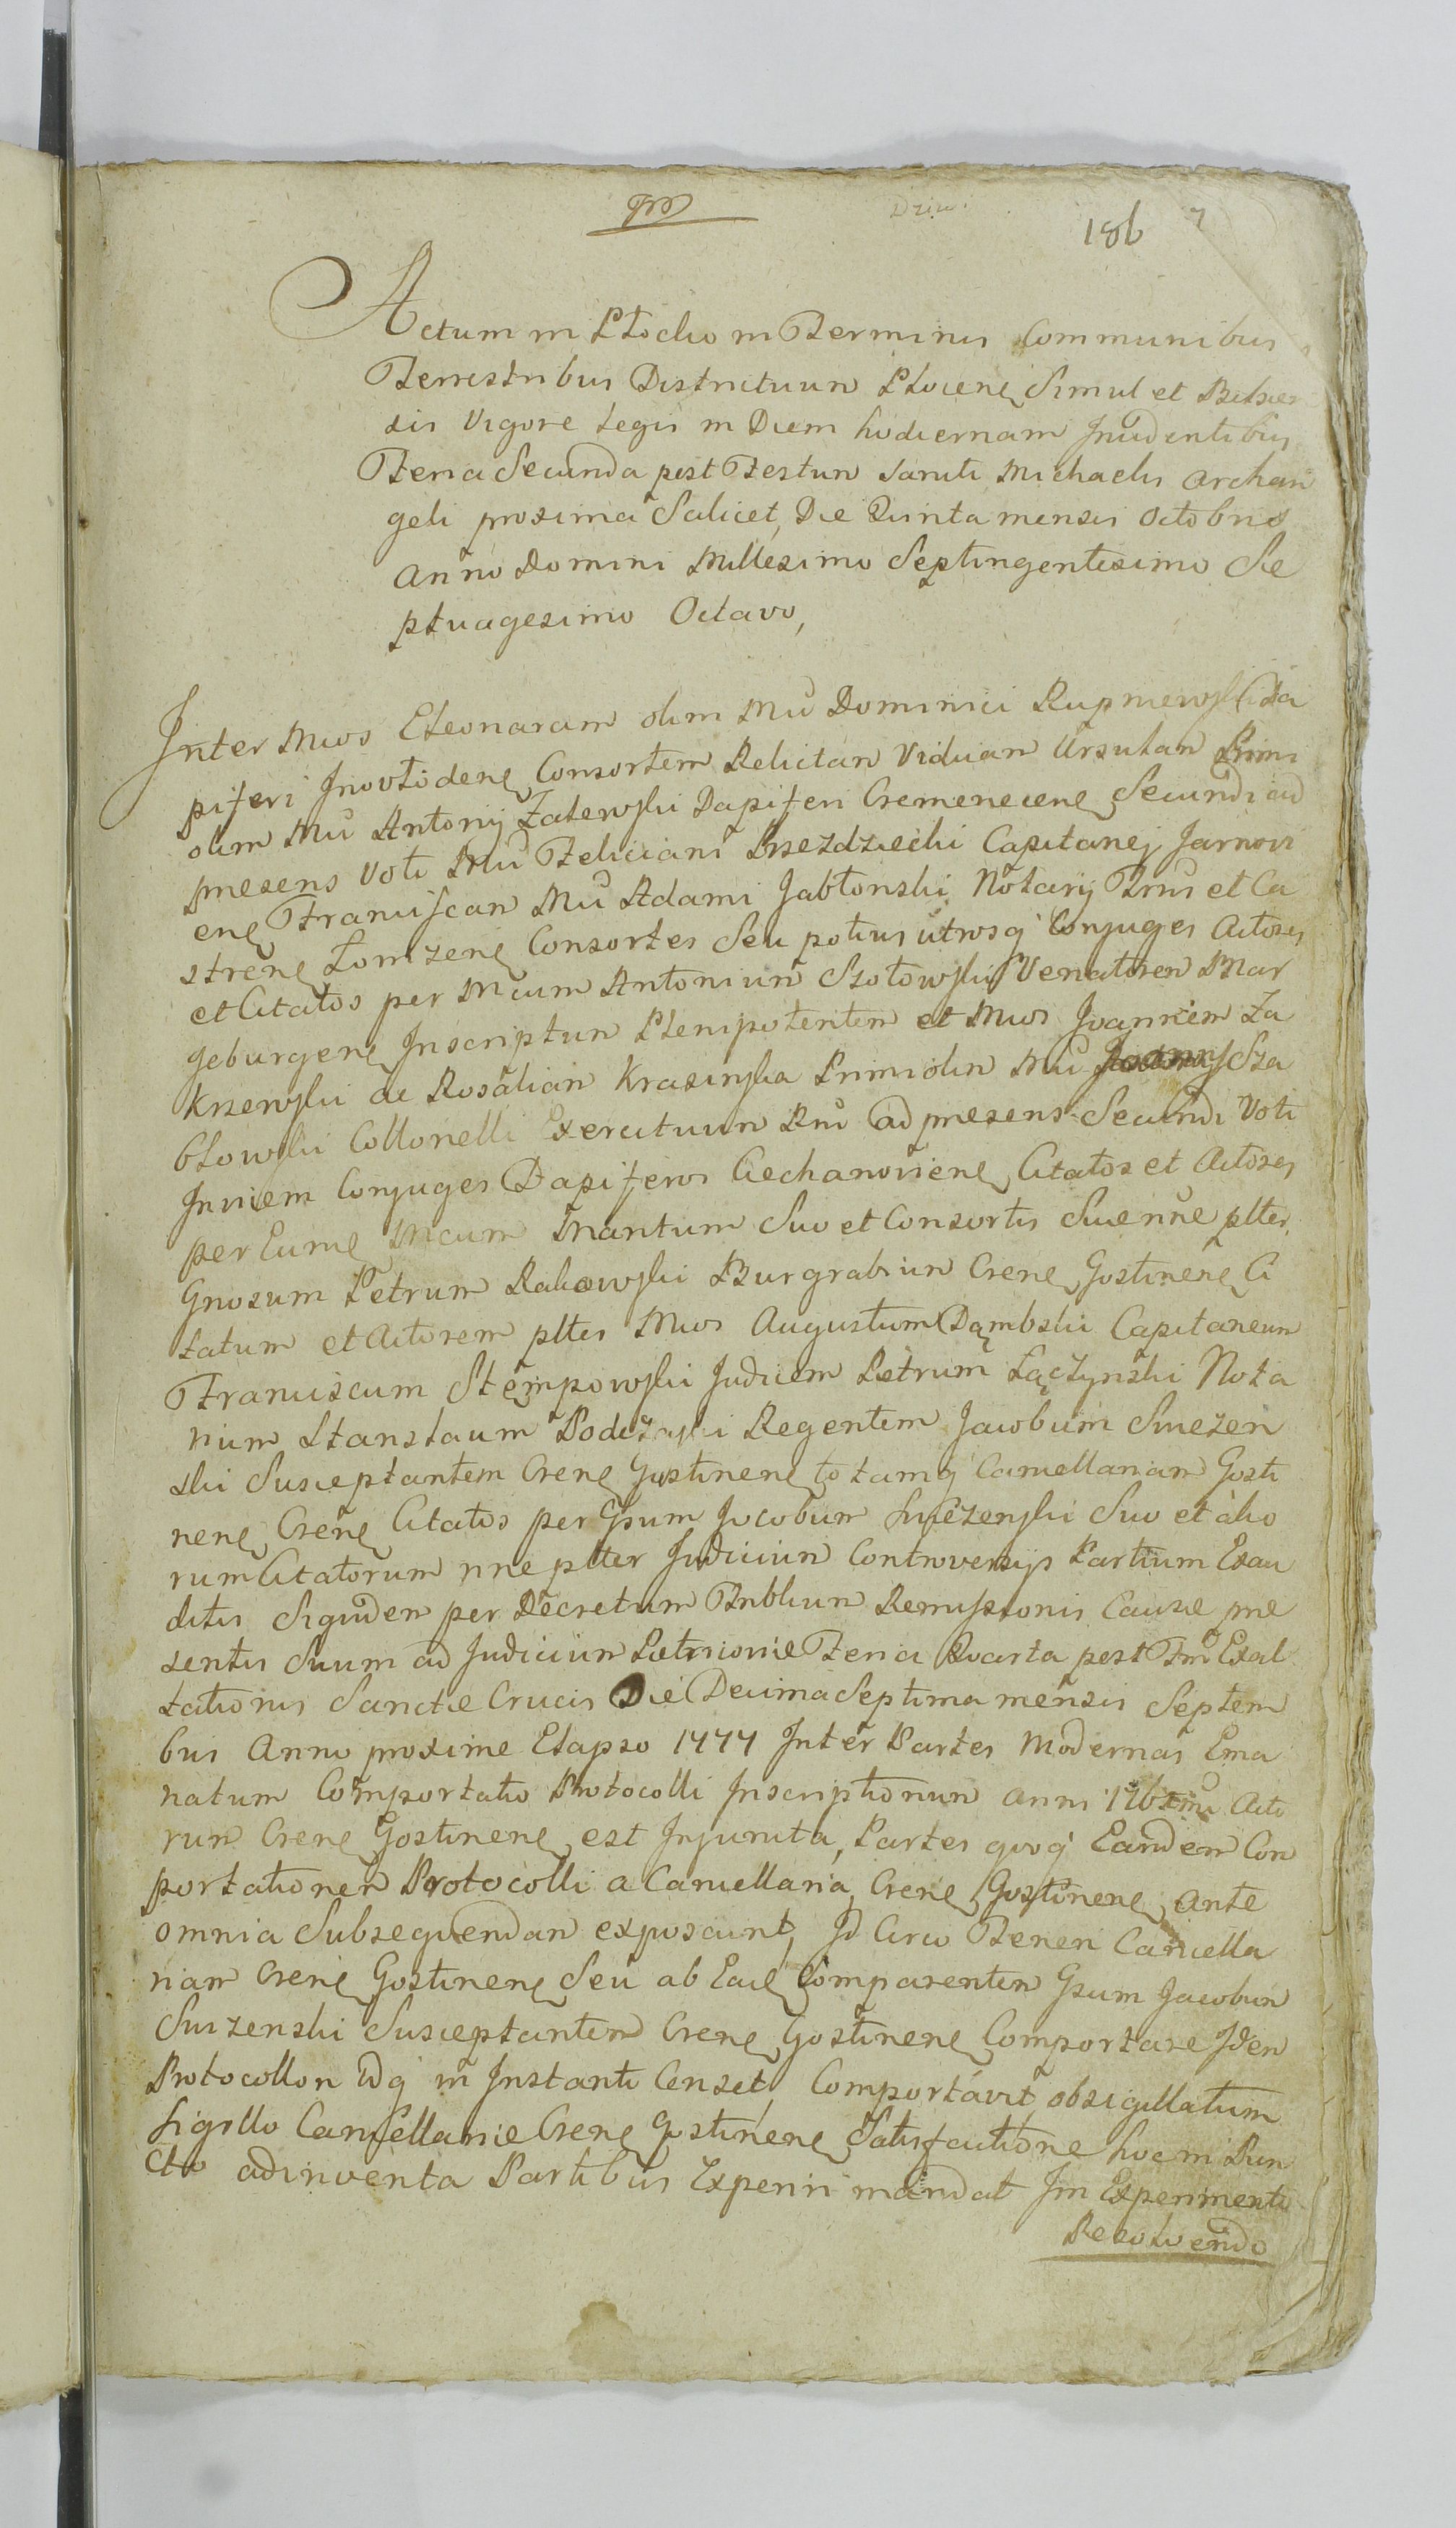 Dziw.
186 7
Actum in Płocko in Terminis Communibus
Terrestribus Districtuum Plocenę Simul et Bielscen
sis Vigore Legis in Diem hodiernam Incidentibus
Feria Secunda post Festum Sancti Michaelis Archan
geli proxima Scilicet, Die Quinta mensis Octobris
Anno Domini Millesimo Septingentesimo Se
ptuagesimo Octavo,
Inter Mcos Eleonaram olim Mci Dominici Rupniewski Da
piferi Inovłodenę Consortem Relictam Viduam Ursulam Primi
olim Mci Antonij Zalewski Dapiferi Cremenecenę Secundi ad
presens Voti Mci Feliciani Przezdziecki Capitanej Jarnovi
enę Franciscam Mci Adami Jabłonski Notarij Trris et Ca
strenę Łomzenę Consortes Seu potius utrosq Conjuges Actores
et Citatos per Mcum Antonium Szołowski Venatorem Mar
geburgenę Inscriptum Plenipotentem et Mcos Joannem Za
krzewski ac Rosaliam Krasinska Primi olim Mci Sza
błowski Collonelli Exercituum Rni ad presens Secundi Voti
Invicem Conjuges Dapiferos Ciechanoviene, Citatos et Actores
per Eume Mcum Maritum Suo et Consortis Sue nne plter
Gnosum Petrum Rakowski Burgrabium Crenę Gostinenę Ci
tatum et Actorem plter Mcos Augustum Dąmbski Capitaneum
Franciscum Stempowski Judicem Petrum Łączynski Nota
rium Stanslaum Podczaski Regentem Jacobum Smezen
ski Susceptantem Crenę Gostinenę totamq Cancellariam Gosti
nenę Crenę Citatos per Gsum Jocobum Smezenski Suo et alio
rum Citatorum nne plter Judicium Controversijs Partium Exau
ditis Siquidem per Decretum Tribliun Remissionis Cause pre
sentis Suum ad Judicium Petricovie Feria Quarta post Ftm Exal
tationis Sancte Crucis Die Decima Septima mensis Septem
bris Anno proxime Elapso 1777 Inter Partes Modernas Ema
natum Comportatio Protocolli Inscriptionum anni Acto
rum Crenę Gostinenę est Injuncta, Partes quoq Eandem Con
portationem Protocolli a Cancellaria Crenę Gostinenę ante
omnia Subsequendam exposcunt, Id Circo Teneri Cancella
riam Crenę Gostinenę Seu ab Eadę Comparentem Gsum Jacobum
Smzenski Susceptantem Crenę Gostinenę Comportare Iden
Protocollon Idq in Instanti Censet, Comportavit obsigillatum
Sigillo Cancellarie Crenę Gostinenę Satisfactione hoc in Pun
cto adinventa Partibus Experiri mandat Im Experimento
Resolvendo